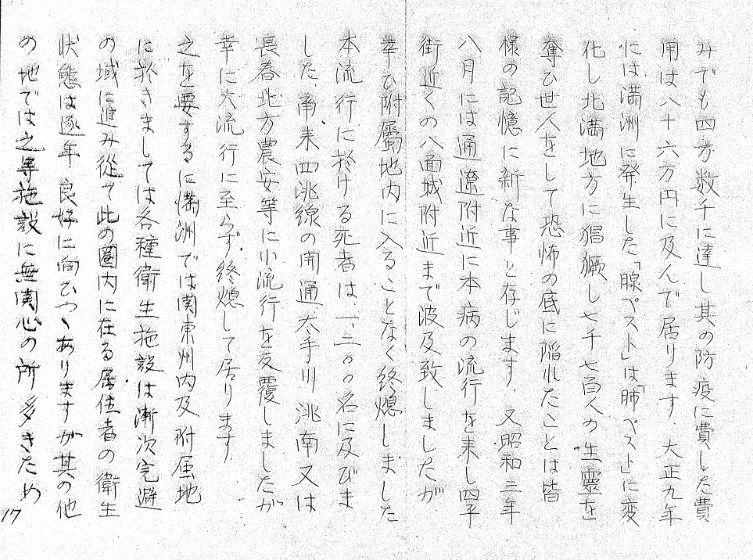 みでも四万数千に達し其の防疫に費した費
用は八十六万円に及んで居ります 大正九年
には満洲に発生した「腺ペスト」は「肺ペスト」に変
化し北満地方に猖獗し七千七百人の生靈を
奪ひ世人をして恐怖の底に陥れたことは皆
様の記憶に新な事と存じます 又昭和三年
八月には通遼附近に本病の流行を来し四平
街近くの八面城附近まで波及致しましたが
幸ひ附屬地内に入ることなく終熄しました
本流行に於ける死者は一、三〇〇名に及びま
した 爾来四洮線の開通 太平川 洮南又は
長春北方農安等に小流行を反覆しましたが
幸に大流行に至らず終熄して居ります
之を要するに満洲では関東州内及附属地
に於きましては各種衛生施設は漸次完避
の域に進み従て此の圏内に在る居住者の衛生
状態は逐年良好に向ひつゝありますが其の他
の地では之等施設に無関心の所多きため
17